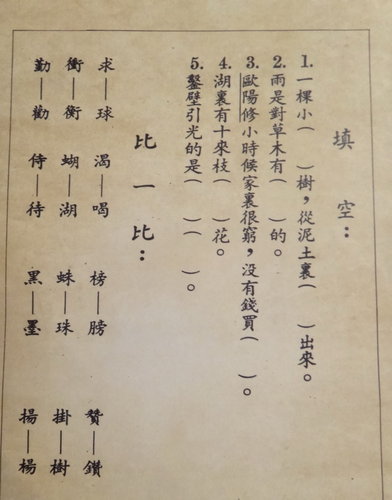 填空：
1. 一棵小（ ）樹，從泥土裏（ ）出來。
2. 雨是對草木有（ ）的。
3. 歐陽修小時候家裏很窮，没有錢買（ ）。
4. 湖裏有十來枝（ ）花。
5. 鑿壁引光的是（ ）（ ）。
比一比：
求—球 渴—喝 榜—膀 贊—鑽
衝—衡 蝴—湖 蛛—珠 掛—樹
勤—勸 侍—待 黑—墨 揚—楊